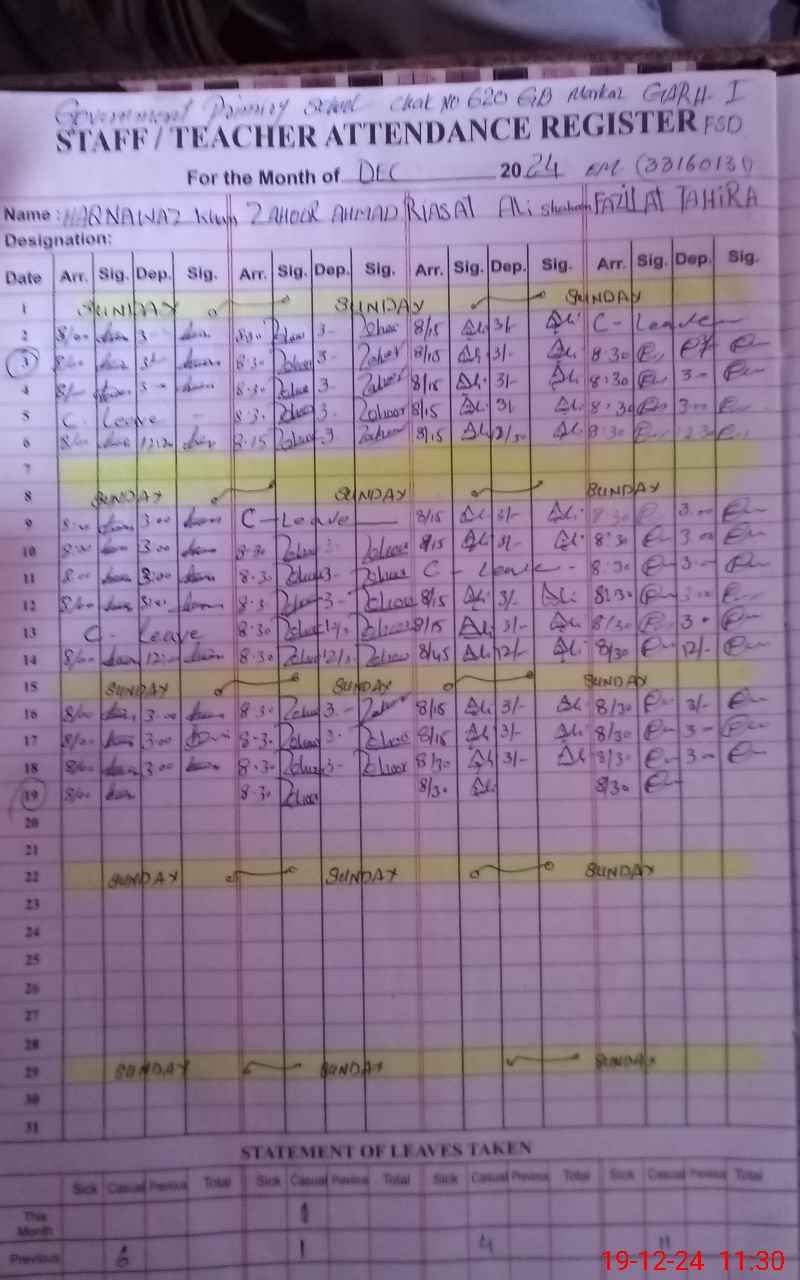 Government Primary School Chak No 620 GB Markaz GARH I
STAFF / TEACHER ATTENDANCE REGISTER FSD
For the Month of DEC 2024 (33160131)
Name: HARNAWAZ Khan ZAHOOR AHMAD RIASAT Ali FAZILAT TAHIRA
Designation:
Date Arr. Sig. Dep. Sig. Arr. Sig. Dep. Sig. Arr. Sig. Dep. Sig. Arr. Sig. Dep. Sig.
1 SUNDAY SUNDAY SUNDAY
2 8/00 3- 8.30 Zahoor 3- Zahoor 8/15 Ali 3/- Ali C- Leave
3 8/00 3/- 8.30 Zahoor 3- Zahoor 8/15 Ali 3/- Ali 8.30
4 8/00 8.30 Zahoor 3. Zahoor 8/15 Ali 3/- Ali 8.30 3-0
5 C. Leave - 8.3. Zahoor 3. Zahoor 8/15 Ali 3/ Ali 8.30 3.00
6 8/00 8.15 Zahoor 3 Zahoor 8/15 Ali 12/30 Ali 8.30 12.30
7
8 SUNDAY SUNDAY SUNDAY
9 8.00 3.00 C-Leave 8/15 Ali 3/- Ali 8.30 3.00
10 8.00 3.00 8.30 Zahoor 3- Zahoor 8/15 Ali 3/- Ali 8.30 3.00
11 8.00 3:00 8.30 Zahoor 3- Zahoor C - Leave - 8.30 3.-
12 8/00 3:00 8.3 Zahoor 3- Zahoor 8/15 Ali 3/- Ali 8:30 3.00
13 C - Leave 8.30 Zahoor Zahoor 8/15 Ali 3/- Ali 8/30 3.
14 8/00 12:00 8.30 Zahoor 12/. Zahoor 8/45 Ali 12/- Ali 8/30 12/-
15 SUNDAY SUNDAY SUNDAY
16 8/00 3.00 8.3. Zahoor 3.- Zahoor 8/15 Ali 3/- Ali 8/30 3/-
17 8/00 3.00 8.3. Zahoor 3. Zahoor 8/15 Ali 3/- Ali 8/30 3-
18 8/00 3.00 8.30 Zahoor 3- Zahoor 8/30 Ali 3/- Ali 8/30 3-
19 8/00 8.30 Zahoor 8/30 Ali 8/30
20
21
22 SUNDAY SUNDAY SUNDAY
23
24
25
26
27
28
29 SUNDAY SUNDAY SUNDAY
30
31
STATEMENT OF LEAVES TAKEN
Sick Casual Previous Total Sick Casual Previous Total Sick Casual Previous Total Sick Casual Previous Total
This Month 1
Previous 6 1 4 11
19-12-24 11:30